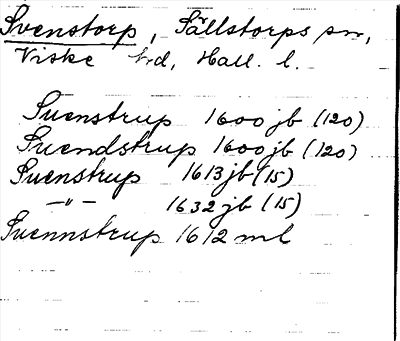 Svenstorp, Sällstorps sn,
Viske hd, Hall. l.
Suenstrup 1600 jb (120)
Suendstrup 1600 jb (120)
Suenstrup 1613 jb (15)
—"— 1632 jb (15)
Suennstrup 1612 ml